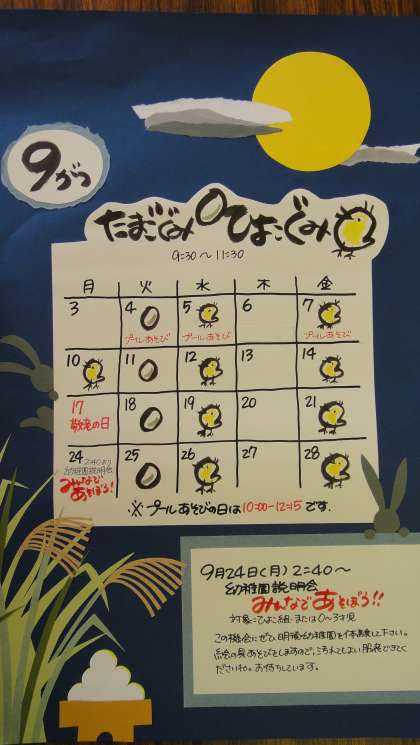 9がつ
たまごぐみ
ひよこぐみ
9:30〜11:30
月 火 水 木 金
3 4 5 6 7
プールあそび プールあそび プールあそび
10 11 12 13 14
17 18 19 20 21
敬老の日
24 25 26 27 28
2:40より
幼稚園説明会
みんなで
あそぼう!
※プールあそびの日は10:00-12:15です.
9月24日(月)2:40〜
幼稚園説明会
みんなであそぼう!!
対象:ひよこ組・または0〜3才児
この機会にぜひ、明福幼稚園を体験して下さい。
絵の具あそびをしますので、汚れてもよい服装できて
くださいね。お待ちしています。